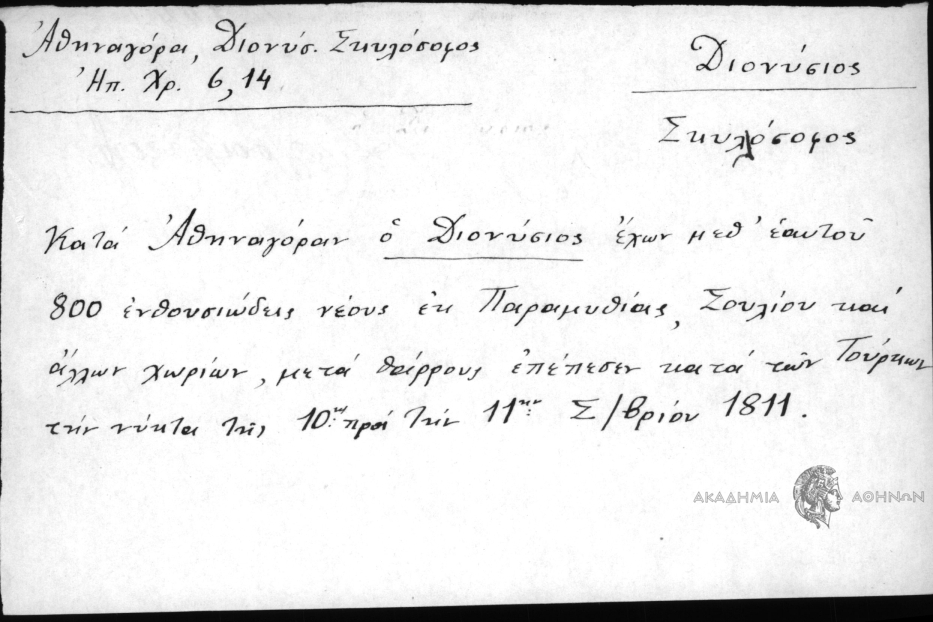 Ἀθηναγόρα, Διονύσ. Σκυλόσοφος
Ἠπ. Χρ. 6,14
Διονύσιος
Σκυλόσοφος
Κατά Ἀθηναγόραν ὁ Διονύσιος ἔχων μεθ' ἑαυτοῦ
800 ἐνθουσιώδεις νέους ἐκ Παραμυθίας, Σουλίου καί
ἄλλων χωρίων, μετά θάρρους ἐπέπεσεν κατά τῶν Τούρκων
τήν νύκτα τῆς 10ης πρό τήν 11ην Σ/βρίου 1811.
ΑΚΑΔΗΜΙΑ ΑΘΗΝΩΝ